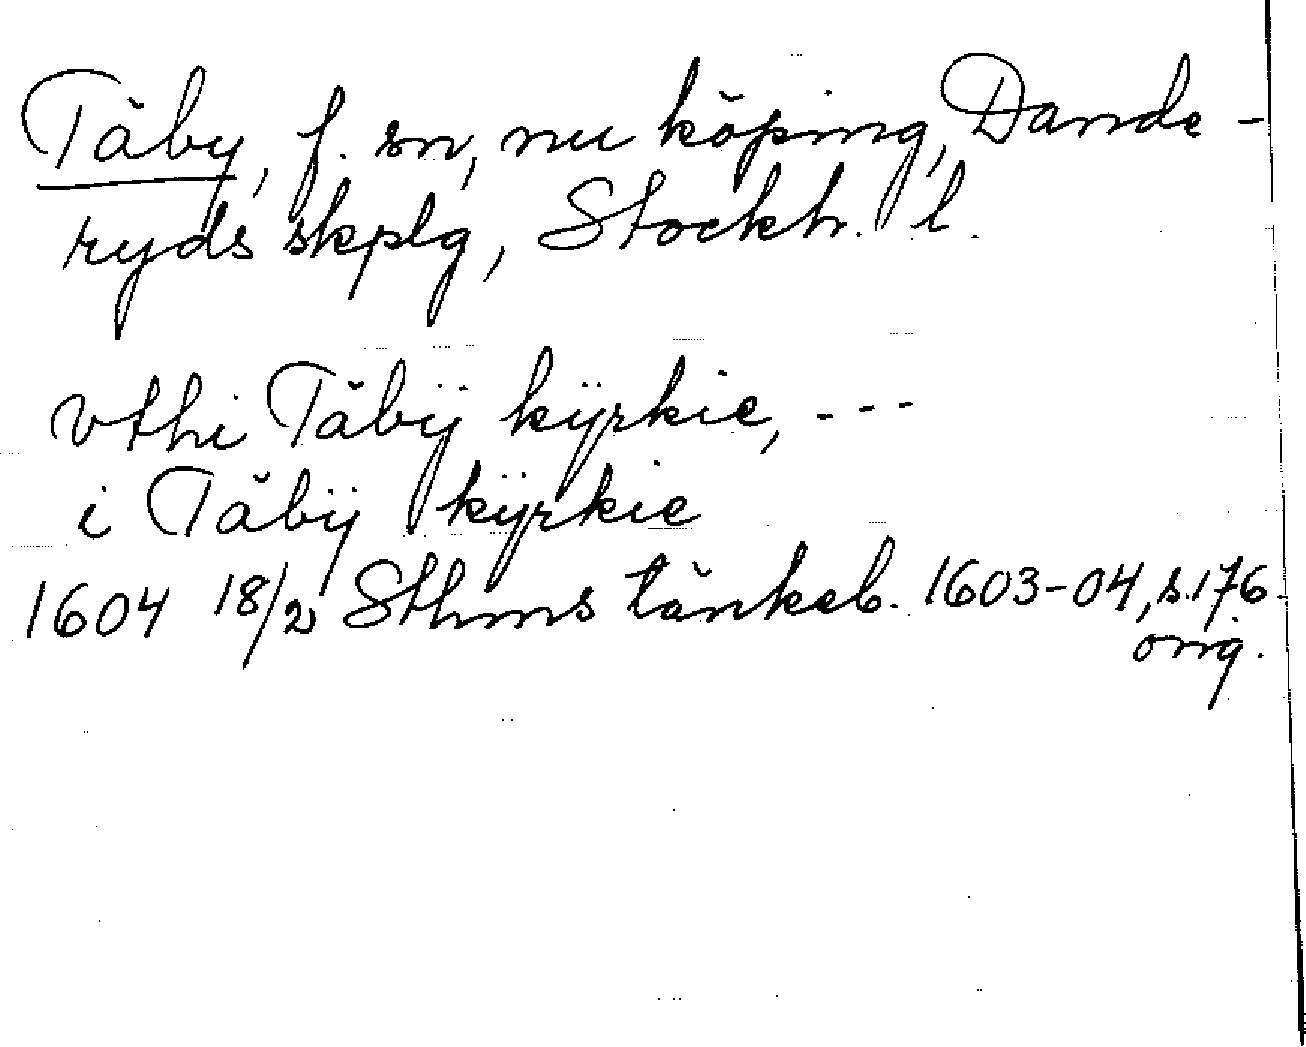 Täby, f. sn, nu köping, Dande-
ryds skplg, Stockh. l.
vthi Täbÿ kÿrkie, ---
i Täbÿ kÿrkie
1604 18/2 Sthms tänkeb. 1603-04, s. 176
orig.